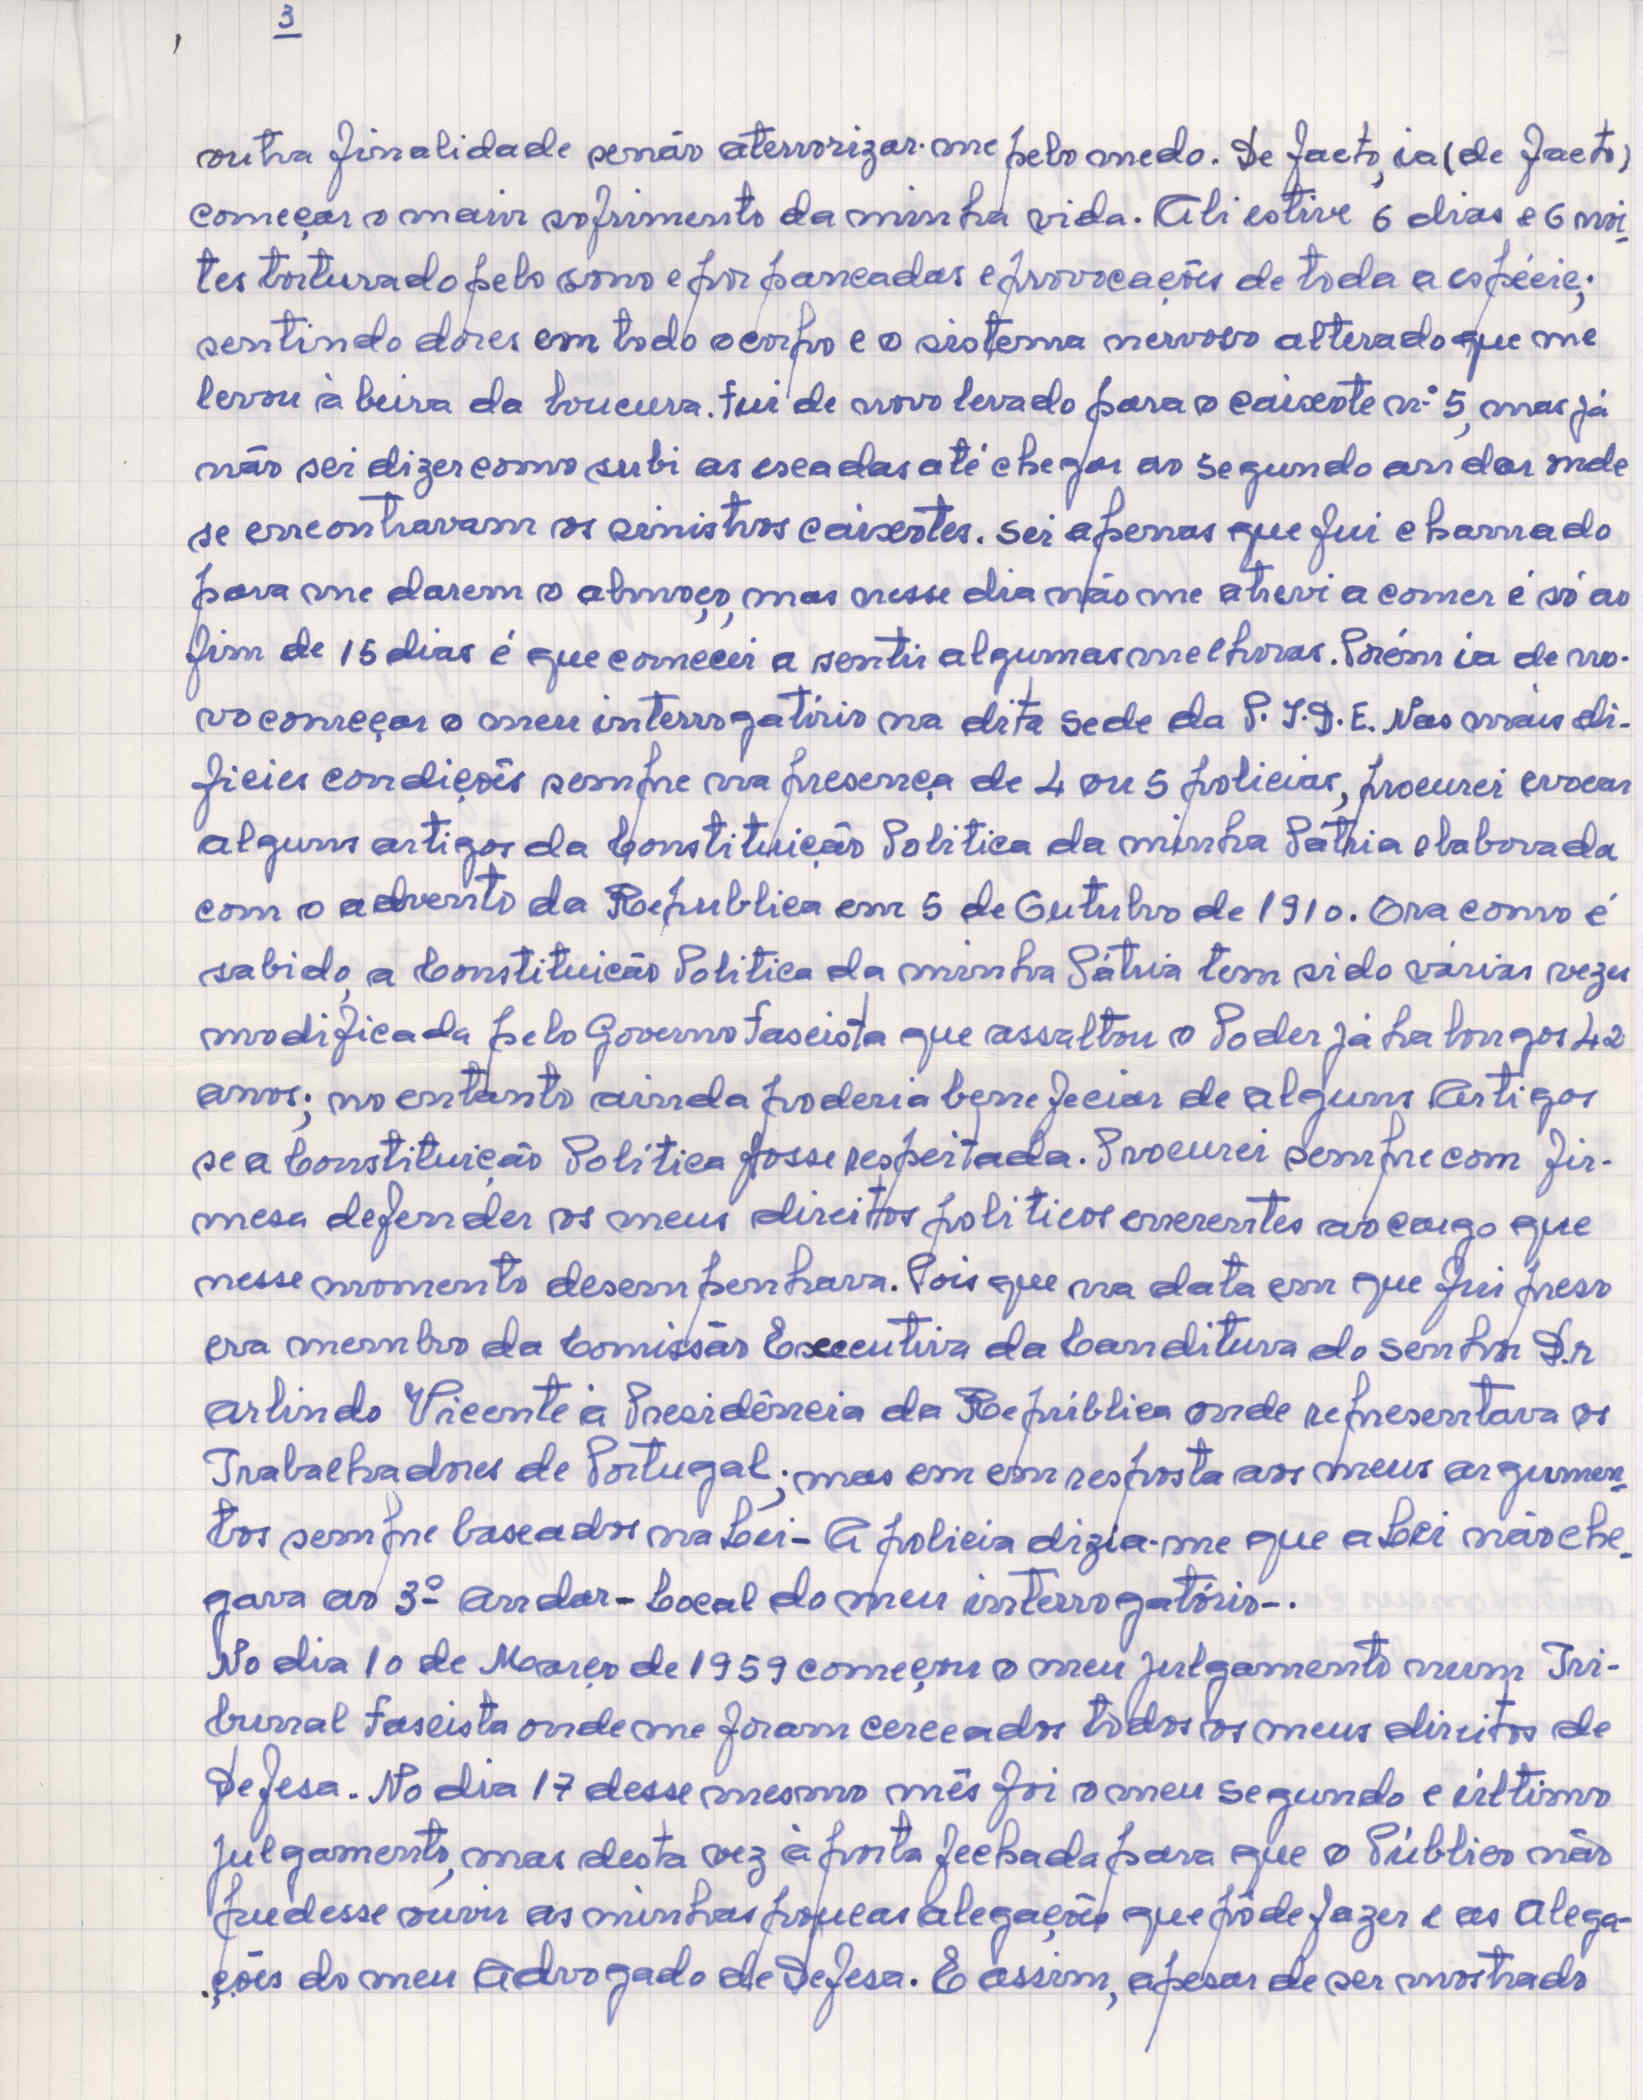 3
outra finalidade senão aterrorizar-me pelo medo. De facto, ia (de facto)
começar o maior sofrimento da minha vida. Ali estive 6 dias e 6 noi-
tes torturado pelo sono e por pancadas e provocações de toda a espécie;
sentindo dores em todo o corpo e o sistema nervoso alterado que me
levou à beira da loucura. Fui de novo levado para o caixote n.º 5, mas já
não sei dizer como subi as escadas até chegar ao segundo andar onde
se encontravam os sinistros caixotes. Sei apenas que fui chamado
para me darem o almoço, mas nesse dia não me atrevi a comer é só ao
fim de 15 dias é que comecei a sentir algumas melhoras. Porém ia de no-
vo começar o meu interrogatório na dita Sede da P.I.D.E. Nas mais di-
ficies condições sempre na presença de 4 ou 5 policias, procurei evocar
alguns artigos da Constituição Politica da minha Pátria elaborada
com o advento da Républica em 5 de Outubro de 1910. Ora como é
sabido, a Constituição Politica da minha Pátria tem sido várias vezes
modificada pelo Governo fascista que assaltou o Poder já ha longos 42
anos; no entanto ainda poderia beneficiar de alguns Artigos
se a Constituição Política fosse respeitada. Procurei sempre com fir-
mesa defender os meus direitos politicos enerentes ao cargo que
nesse momento desempenhava. Pois que na data em que fui preso
era membro da Comissão Executiva da Canditura do Senhor D.r
Arlindo Vicente à Presidência da República onde representava os
Trabalhadores de Portugal; mas em em resposta aos meus argumen-
tos sempre baseados na Lei - A policia dizia-me que a Lei não che-
gava ao 3º andar - Local do meu interrogatório-.
No dia 10 de Março de 1959 começou o meu julgamento num Tri-
bunal Fascista onde me foram cerceados todos os meus direitos de
Defesa. No dia 17 desse mesmo mês foi o meu segundo e último
julgamento, mas desta vez à porta fechada para que o Público não
pudesse ouvir as minhas poucas alegações que pôde fazer e as Alega-
ções do meu Advogado de Defesa. E assim, apesar de ser mostrado